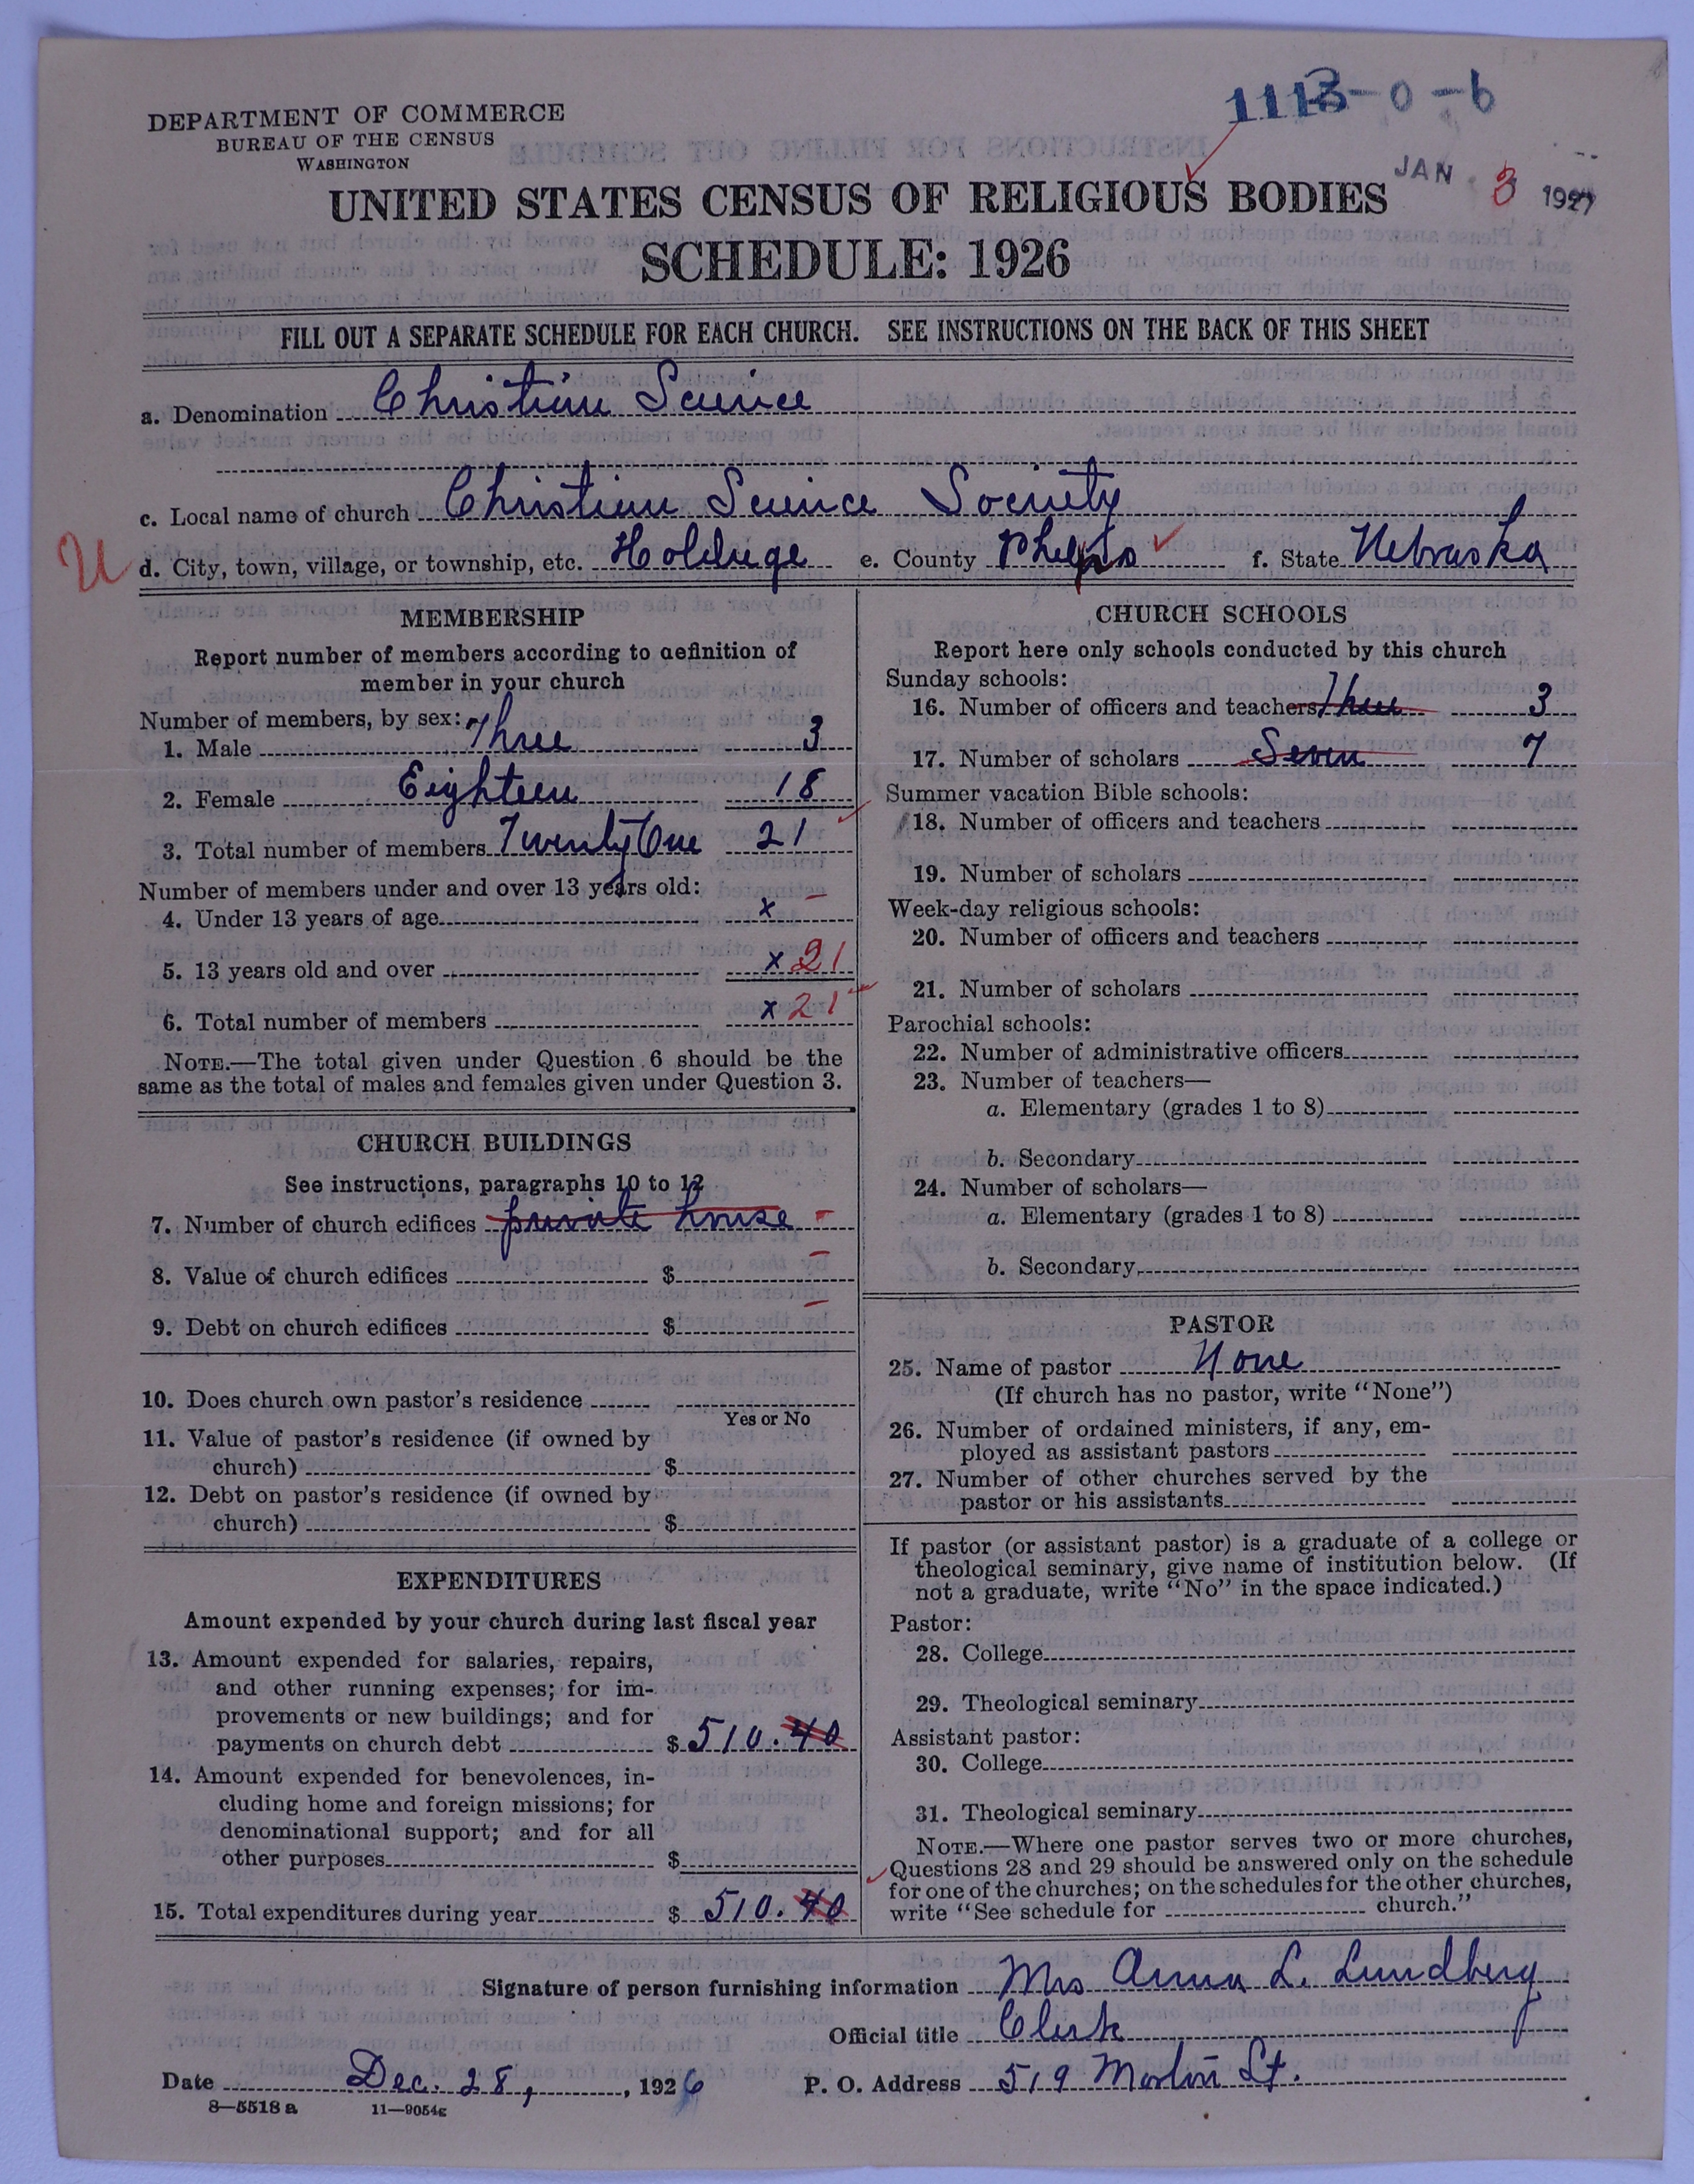 1113-0-6
JAN 3 1927
DEPARTMENT OF COMMERCE
BUREAU OF THE CENSUS
WASHINGTON
UNITED STATES CENSUS OF RELIGIOUS BODIES
SCHEDULE: 1926
FILL OUT A SEPARATE SCHEDULE FOR EACH CHURCH. SEE INSTRUCTIONS ON THE BACK OF THIS SHEET
a. Denomination Christian Science
c. Local name of church Christian Science Society
U
d. City, town, village, or township, etc. Holdrege e. County Phelps f. State Nebraska
MEMBERSHIP
Report number of members according to definition of
member in your church
Number of members, by sex:
1. Male Three 3
2. Female Eighteen 18
3. Total number of members Twenty One 21
Number of members under and over 13 years old:
4. Under 13 years of age x -
5. 13 years old and over x 21
6. Total number of members x 21
NOTE.—The total given under Question 6 should be the
same as the total of males and females given under Question 3.
CHURCH BUILDINGS
See instructions, paragraphs 10 to 12
7. Number of church edifices private house -
8. Value of church edifices $ -
9. Debt on church edifices $ -
10. Does church own pastor's residence
Yes or No
11. Value of pastor's residence (if owned by
church) $
12. Debt on pastor's residence (if owned by
church) $
EXPENDITURES
Amount expended by your church during last fiscal year
13. Amount expended for salaries, repairs,
and other running expenses; for im-
provements or new buildings; and for
payments on church debt $ 510.40
14. Amount expended for benevolences, in-
cluding home and foreign missions; for
denominational support; and for all
other purposes $
15. Total expenditures during year $ 510.40
CHURCH SCHOOLS
Report here only schools conducted by this church
Sunday schools:
16. Number of officers and teachers Three 3
17. Number of scholars Seven 7
Summer vacation Bible schools:
18. Number of officers and teachers
19. Number of scholars
Week-day religious schools:
20. Number of officers and teachers
21. Number of scholars
Parochial schools:
22. Number of administrative officers
23. Number of teachers—
a. Elementary (grades 1 to 8)
b. Secondary
24. Number of scholars—
a. Elementary (grades 1 to 8)
b. Secondary
PASTOR
25. Name of pastor None
(If church has no pastor, write "None")
26. Number of ordained ministers, if any, em-
ployed as assistant pastors
27. Number of other churches served by the
pastor or his assistants
If pastor (or assistant pastor) is a graduate of a college or
theological seminary, give name of institution below. (If
not a graduate, write "No" in the space indicated.)
Pastor:
28. College
29. Theological seminary
Assistant pastor:
30. College
31. Theological seminary
NOTE.—Where one pastor serves two or more churches,
Questions 28 and 29 should be answered only on the schedule
for one of the churches; on the schedules for the other churches,
write "See schedule for church."
Signature of person furnishing information Mrs Anna L. Lundberg
Official title Clerk
Date Dec. 28, , 1926 P. O. Address 519 Morton St.
8—5518 a 11—9054g